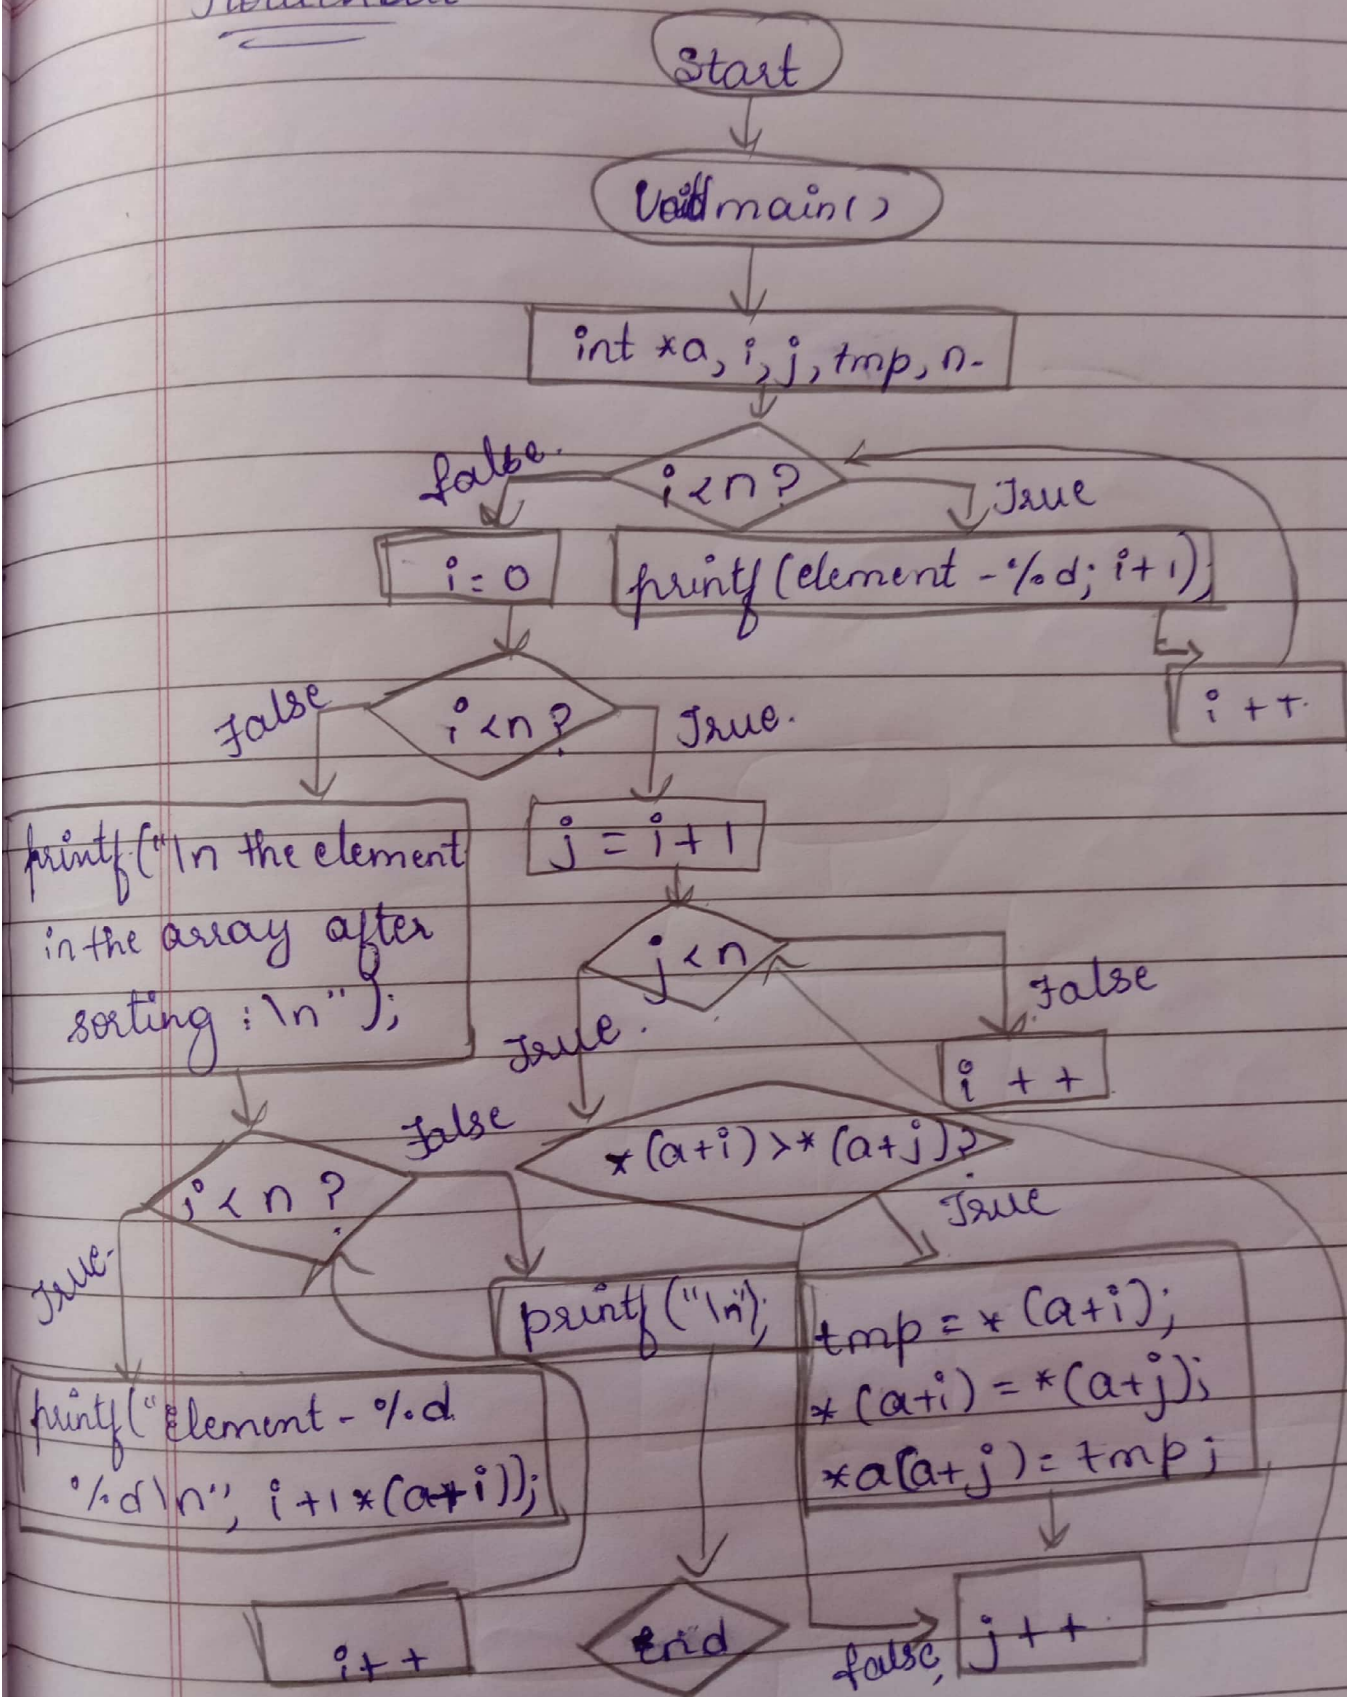 Start
Void main()
int *a, i, j, tmp, n-
false.
i<n?
True
i=0
printf(element -%d; i+1);
i ++
False
i<n?
True.
printf("\n the element
in the array after
sorting :\n");
j = i+1
j<n
False
True.
i ++
False
*(a+i)>*(a+j)?
i<n?
True
True.
printf("\n");
tmp = *(a+i);
*(a+i) = *(a+j);
*a(a+j) = tmp;
printf("Element - %d
%d\n", i+1*(a+i));
i++
End
false,
j++